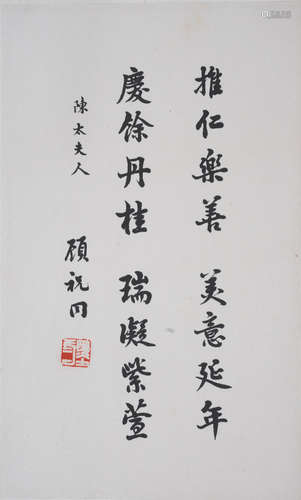 推仁樂善　美意延年
慶餘丹桂　瑞凝紫萱
陳太夫人
顧祝同